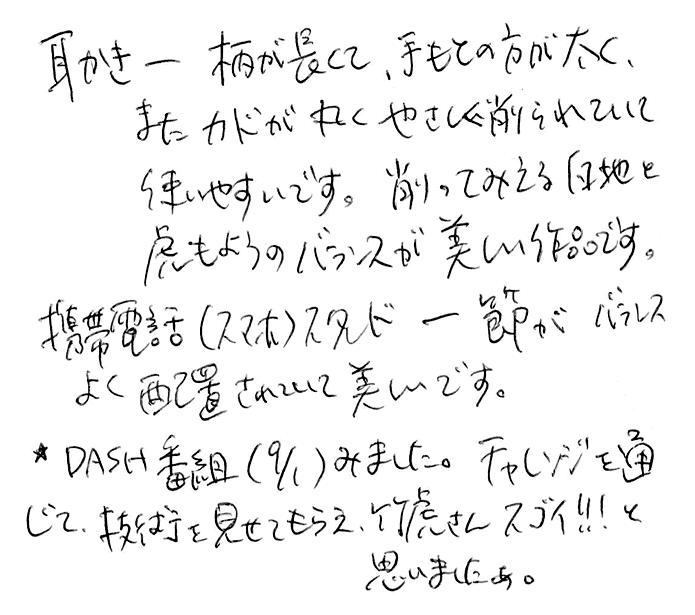 耳かき ー 柄が長くて、手もとの方が太く、
またカドが丸くやさしく削られていて
使いやすいです。削ってみえる白地と
虎もようのバランスが美しい作品です。
携帯電話(スマホ)スタンド ー 節がバランス
よく配置されていて美しいです。
★ DASH番組(9/1)みました。チャレンジを通
じて、技術を見せてもらえ、竹虎さんスゴイ!!!と
思いましたぁ。